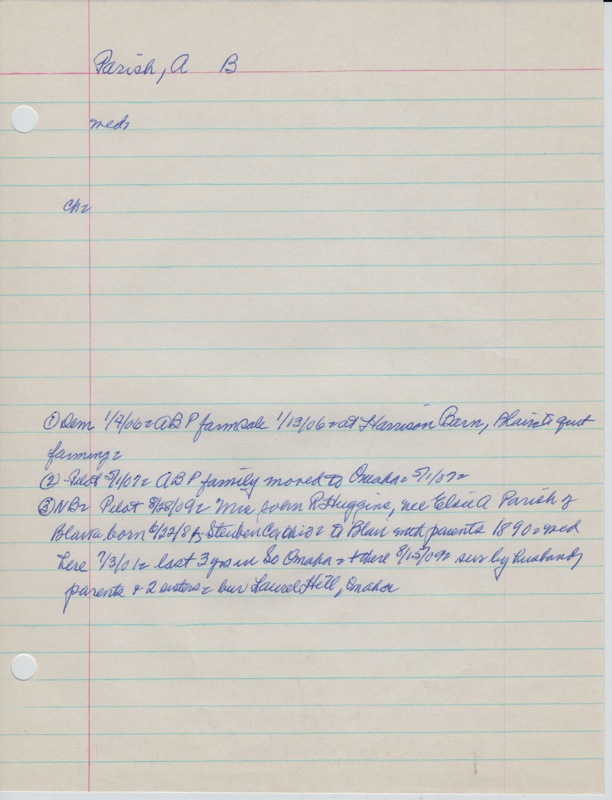 Parish, A B
med=
ch=
① Dem 1/4/06= ABP farm sale 1/13/06= at Harrison Barn, Blair= to quit
farming=
② Pilot 5/1/07= ABP family moved to Omaha= 5/1/07=
③ NB= Pilot 8/28/09= Mrs R Huggins, nee Elsie A Parish of
Blair= born 6/22/8 Steuben Co Ohio= to Blair with parents 1890=
here 7/3/01= last 3 yrs in So Omaha= + there 8/15/09= sur by husband,
parents + 2 sisters= bur Laurel Hill, Omaha